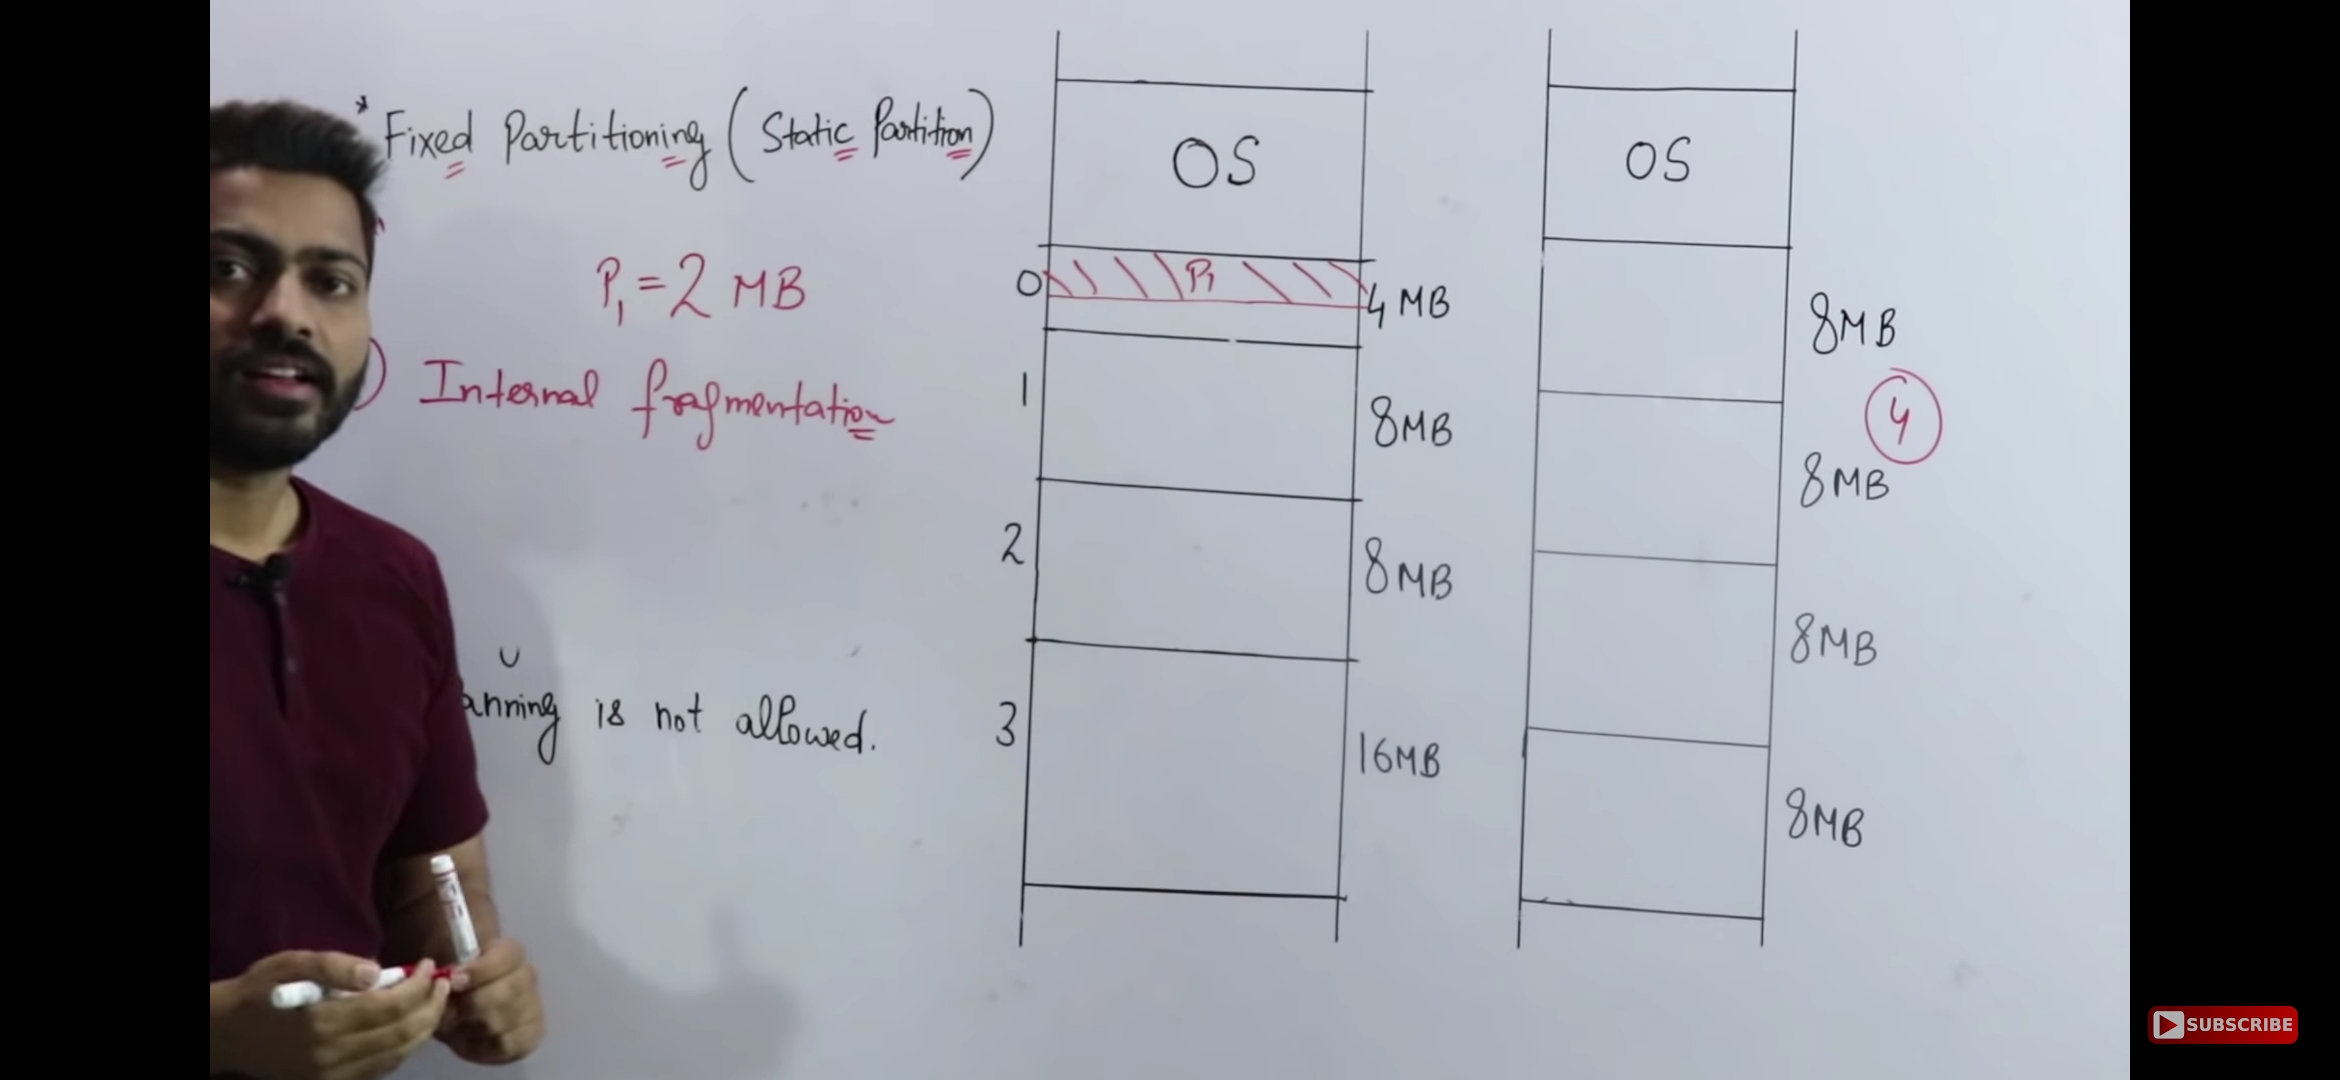 * Fixed Partitioning (Static Partition)
P1 = 2 MB
) Internal fragmentation
anning is not allowed.
OS
0 P1 4 MB
1 8MB
2 8MB
3 16MB
OS
8MB
4
8MB
8MB
8MB
SUBSCRIBE